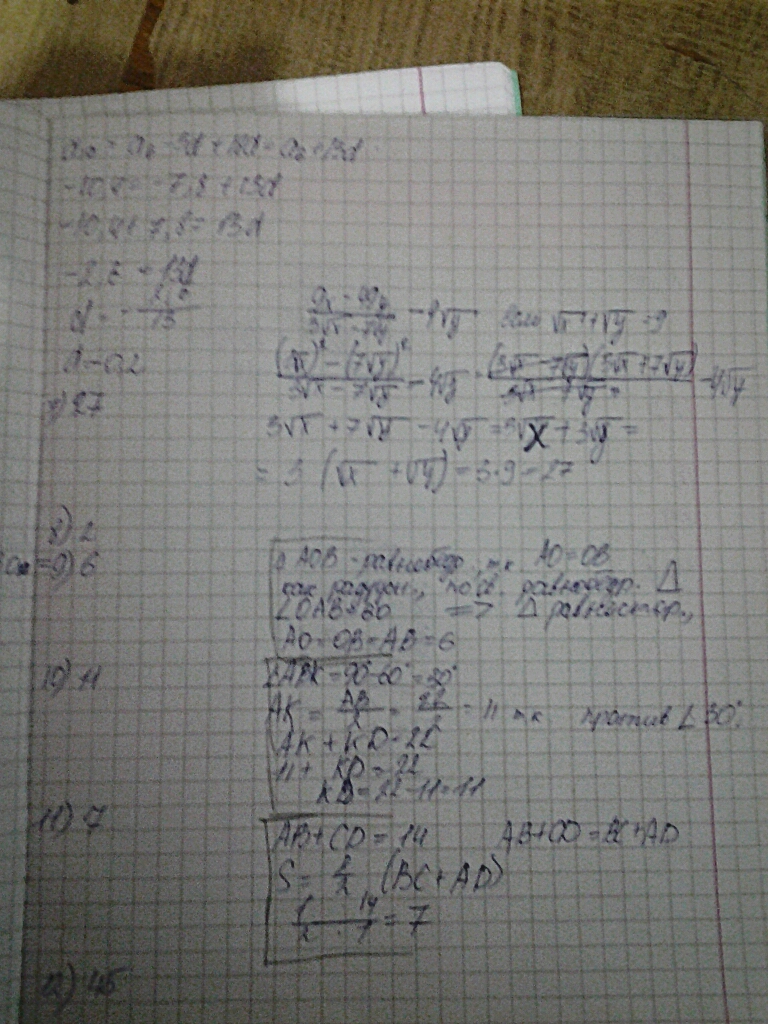 -10,4 = -7,8 + 13d
-10,4 + 7,8 = 13d
-2,6 = 13d
d = - 2,6 / 13
d = -0,2
7) 27
9x - 49y / 3√x - 7√y - 4√y если √x + √y = 9
(3√x)² - (7√y)² / 3√x - 7√y - 4√y = (3√x - 7√y)(3√x + 7√y) / 3√x - 7√y - 4√y
3√x + 7√y - 4√y = 3√x + 3√y =
= 3 (√x + √y) = 3·9 = 27
8) 2
9) 6
AOB - равнобедр., т.к AO = OB
как радиусы, по св. равнобедр. Δ
∠OAB = 60 => Δ равностор.,
AO = OB = AB = 6
10) 11
∠ABK = 90°-60° = 30°
AK = AB/2 = 22/2 = 11 т.к против ∠30°,
AK + KD = 22
11 + KD = 22
KD = 22-11 = 11
11) 7
AB + CD = 14 AB + CD = BC + AD
S = 1/2 (BC + AD)
1/2 · 14/1 = 7
12) 45